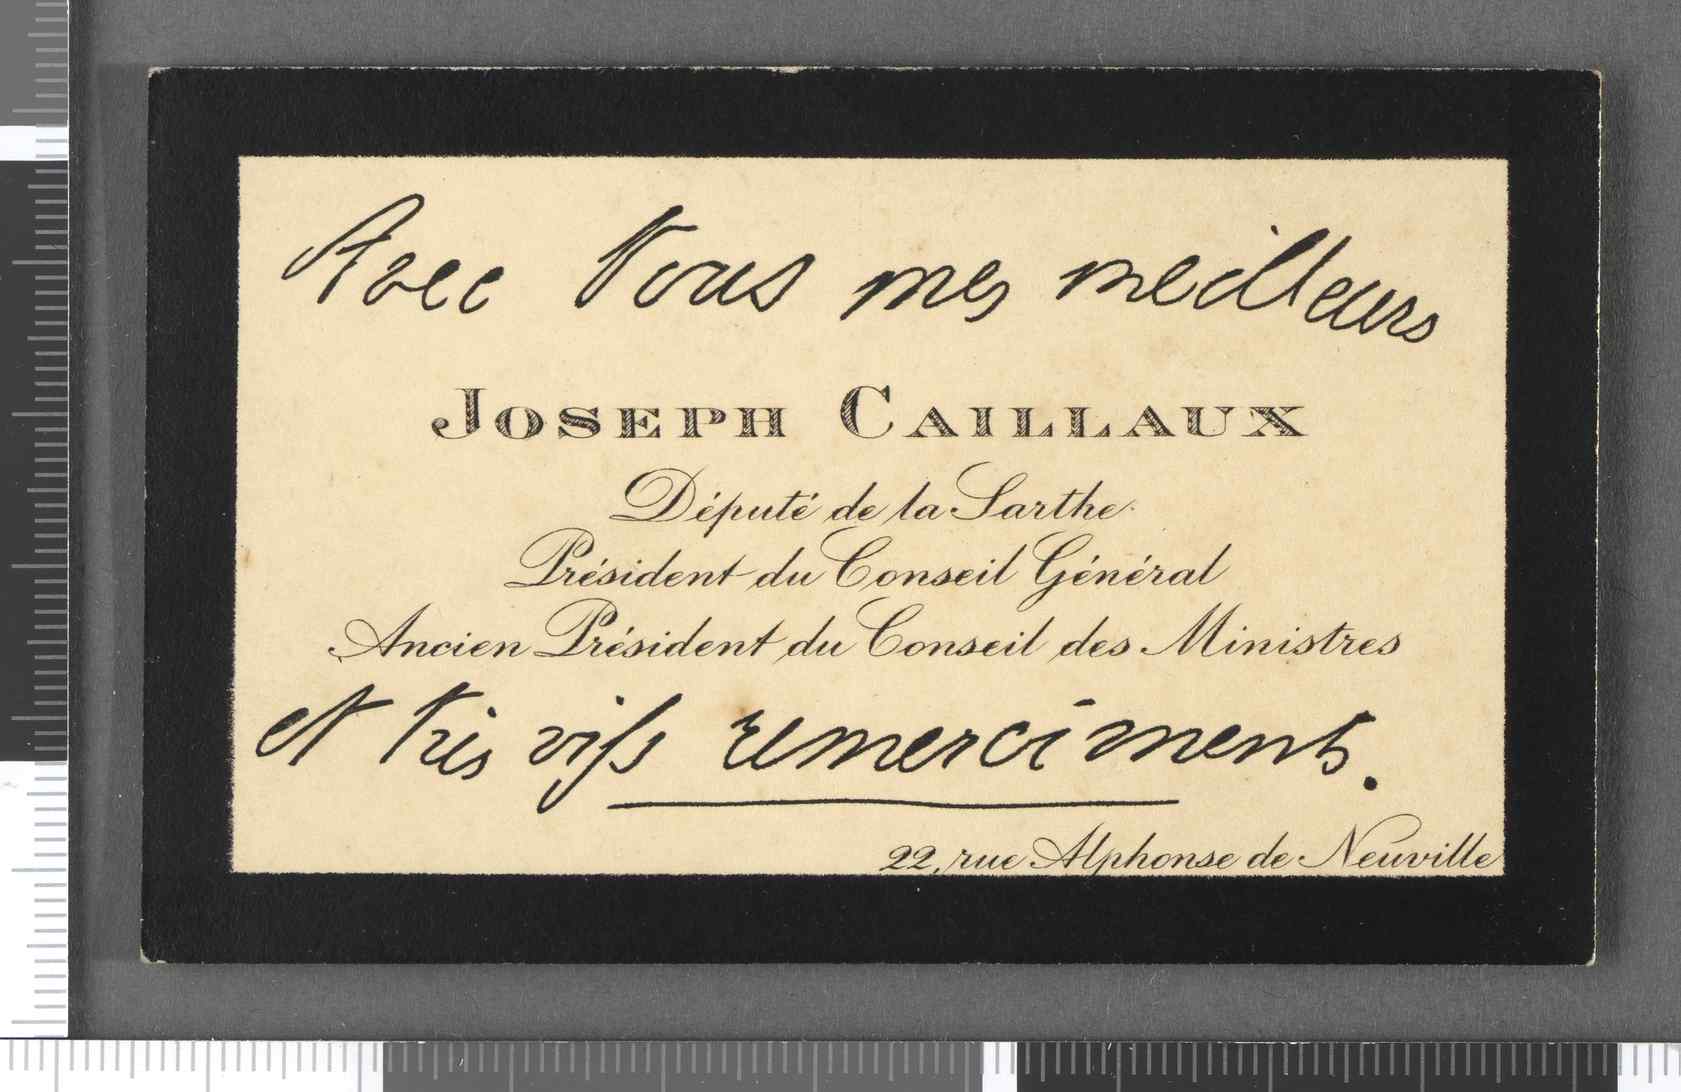 Avec tous mes meilleurs
JOSEPH CAILLAUX
Député de la Sarthe
Président du Conseil Général
Ancien Président du Conseil des Ministres
et très vifs remerciments.
22, rue Alphonse de Neuville